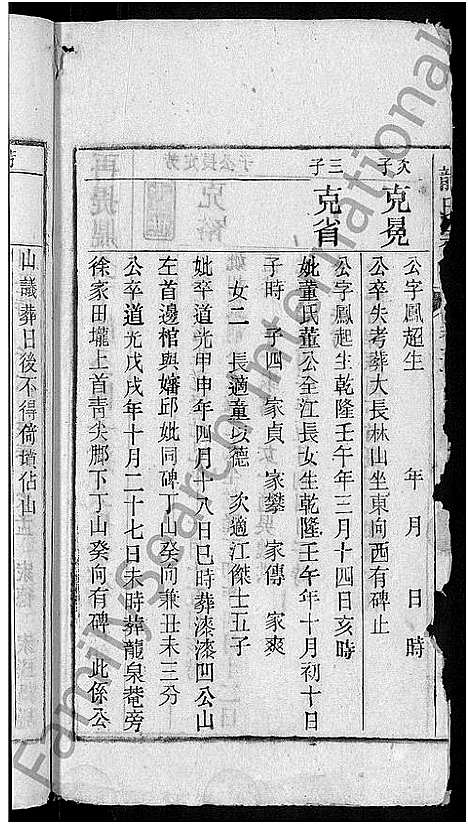 龍氏
次子 克晃
公字鳳超生 年 月 日 時
公卒失考葬大長林山坐東向西有碑止
三子 克省
公字鳳起生乾隆壬午年三月十四日亥時
妣董氏董公全江長女生乾隆壬午年十月初十日
子時 子四 家貞 家攀 家傳 家爽
女二 長適童以德 次適江傑士五子
妣卒道光甲申年四月十八日巳時葬漆漆凹公山
左首邊棺與嬸邱妣同碑丁山癸向兼丑未三分
公卒道光戊戌年十月二十七日未時葬龍泉菴旁
徐家田壠上首青尖腳下丁山癸向有碑 此係公
山議葬日後不得倚墳佔山
FamilySearch International